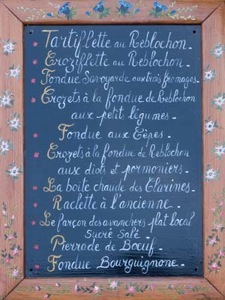 Tartiflette au Reblochon.
Croziflette au Reblochon.
Fondue Savoyarde aux trois fromages.
Crozets à la fondue de Reblochon
aux petit légumes.
Fondue aux Cèpes.
Crozets à la fondue de Reblochon
aux diots et pormoniers.
La boîte chaude des Clarines.
Raclette à l'ancienne.
Le farçon des avanchers plat local
Sucré Salé.
Pierrade de Boeuf.
Fondue Bourguignonne.